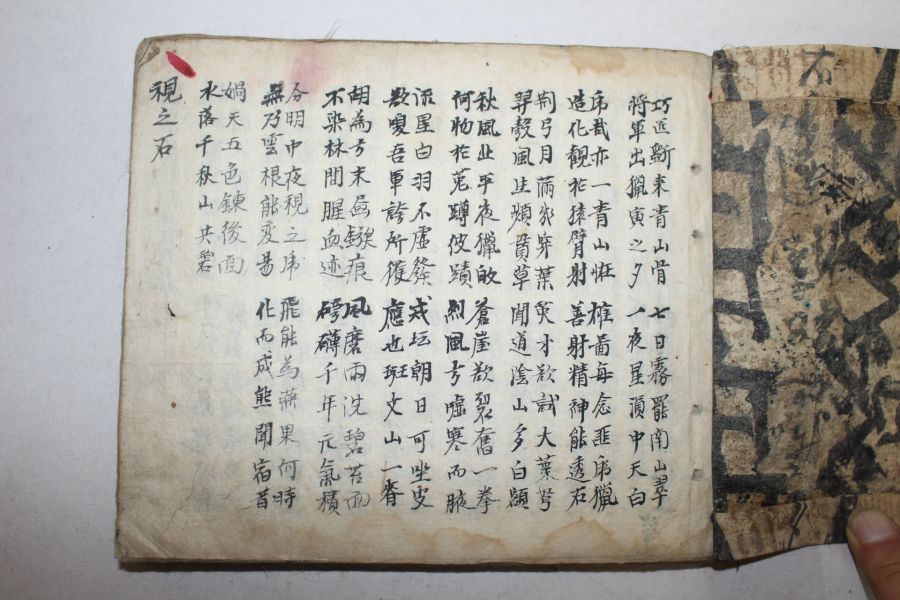 巧近斲束青山骨 七日霧罷南山翠
将軍出獵寅之夕 一夜星湏中天白
虎哉亦一青山恠 雄啚每念韭虎獵
造化観於猿臂射 善射精神能透石
荆弓月滿 穿葉 英才欲試大葉弓
羿彀風生頻貫草 聞道陰山多白額
秋風北平夜獵畋 蒼崖欲裂奮一拳
何物於菟蹲彼蹟 烈風兮噓寒而腋
流星白羽不虛發 戎坛朝日可坐皮
数 吾軍誇所獲 應也班文山一脊
胡為兮末 鏃痕 風磨雨洗碧苔面
不染林間腥血迹 磅礴千年元氣積
分明中夜視之虎 飛能為燕果何時
無乃雲根能変易 化而成熊聞宿昔
媧天五色錬後面
水落千秋山共碧
視之石